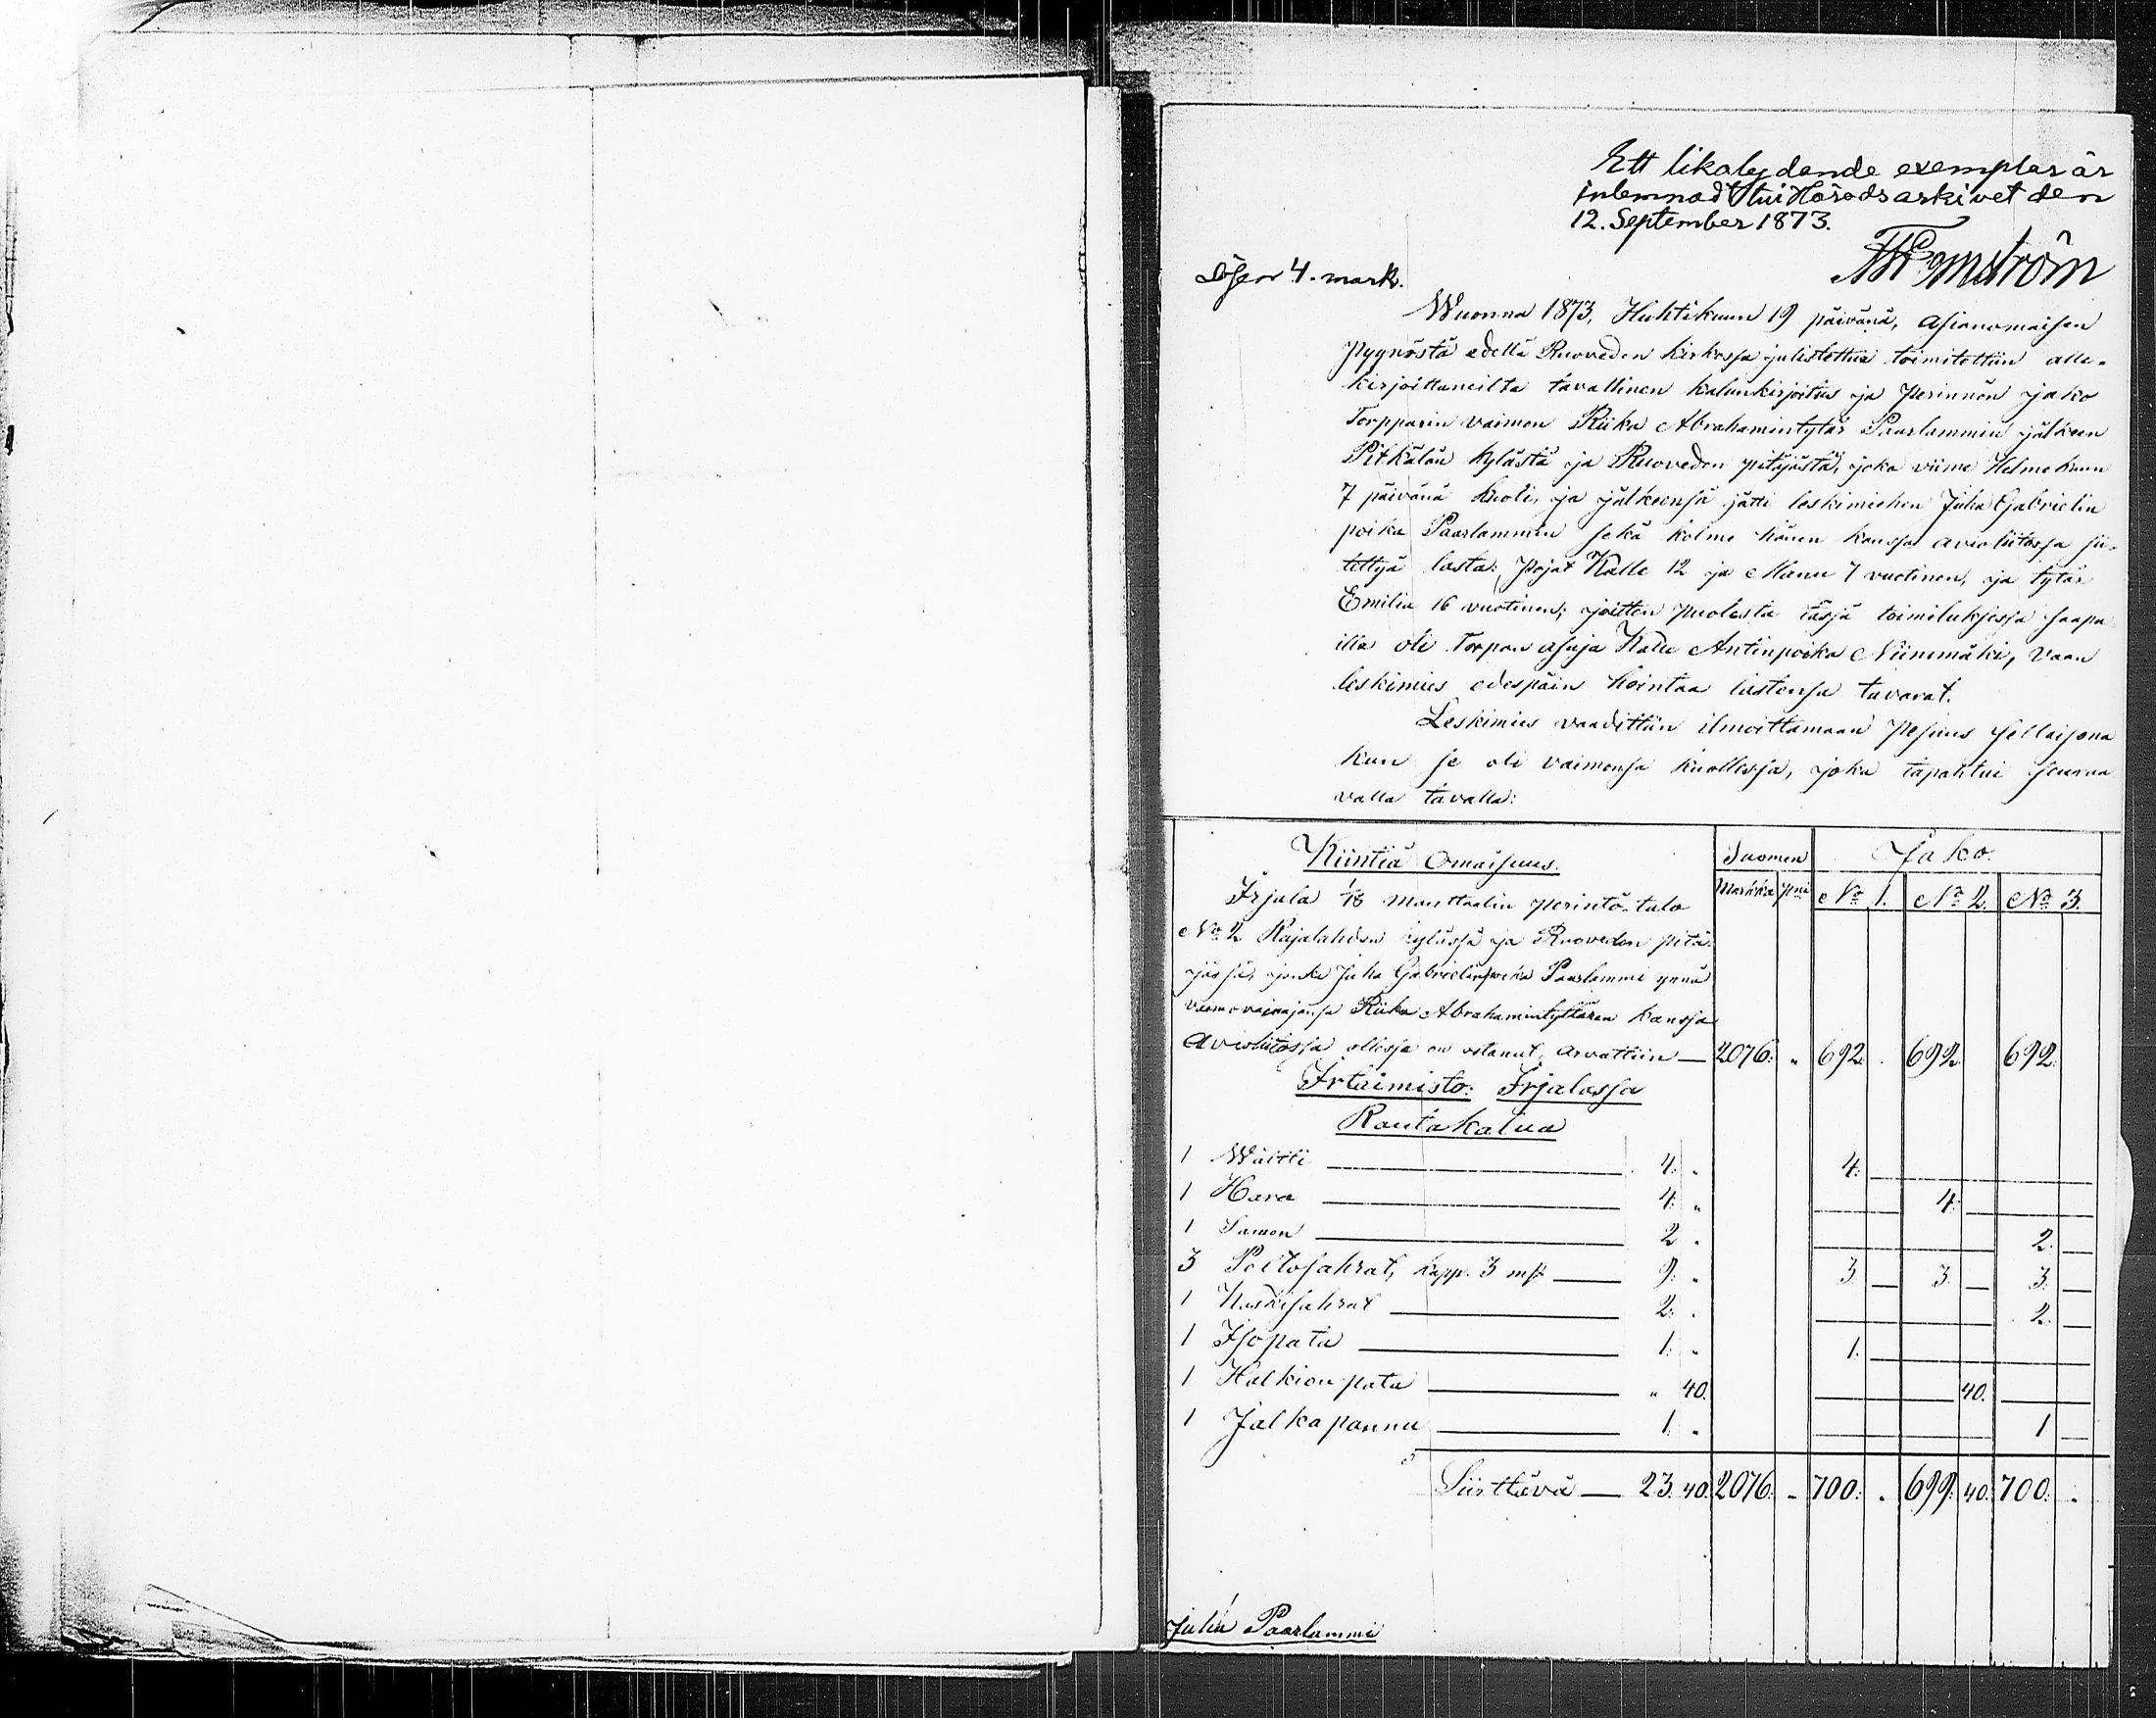 Ett likalydande exemplar är
inlemnadt till Häradsarkivet den
12. September 1873.
Lösen 4. mark.
Wuonna 1873, Huhtikuun 19 päivänä, asianomaisen
pyynöstä edellä Ruoveden kirkossa julistettua toimitettiin alle-
kirjoittaneilta tavallinen kalunkirjoitus ja perinnön jako
Torpparin vaimon Riika Abrahamintytär Paarlammin jälkeen
Pitkälän kylästä ja Ruoveden pitäjästä, joka viime Helmekuun
7 päivänä kuoli, ja jälkeensä jätti leskimiehen Juha Gabrielin
poika Paarlammin sekä kolme hänen kanssa avioliitossa sii-
tettyä lasta: Pojat Kalle 12 ja Manu 7 vuotinen, ja tytär
Emilia 16 vuotinen; joitten puolesta tässä toimituksessa saapu
illa oli Torpan asuja Kalle Antinpoika Niinimäki, vaan
leskimies edespäin hointaa lastensa tavarat.
Leskimies vaadittiin ilmoittamaan pesäns sellaisena
kun se oli vaimonsa kuollessa, joka tapahtui seuraa
valla tavalla:
Kiintiä Omaisuus. Suomen Jako.
Markka pni No 1. No 2. No 3.
Irjala 1/18 manttaalin perintö-talo
No 2 Rajalahden kylässä ja Ruoveden pitä-
jässä, jonka Juha Gabrielinpoika Paarlammi ynnä
vaimovainajansa Riika Abrahamintyttären kanssa
Avioliitossa ollessa on ostanut, arvattiin — 2076: „ 692. . 692 692
Irtaimisto: Irjalassa
Rautakalua
1 Wältti — 4: „ 4:
1 Hara — 4: „ 4:
1 — 2 „ 2.
3 Peitosahrat, kapp. 3 mk — 9: „ 3 — 3 — 3. —
1 Kaskisahrat — 2: „ 2. —
1 Isopata — 1: „ 1:
1 Halkionpata — „ 40. 40.
1 Jalkapannu — 1: „ 1 —
Siirttävä — 23. 40. 2076: „ 700: . 699: 40. 700: .
Juha Paarlammi